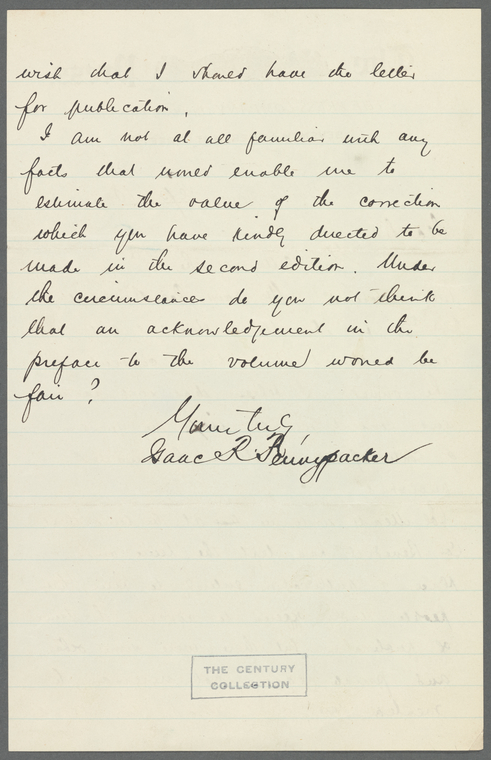 wish that I should have the letter
for publication.
I am not at all familiar with any
facts that would enable me to
estimate the value of the correction
which you have kindly directed to be
made in the second edition. Under
the circumstances do you not think
that an acknowledgement in the
preface to the volume would be
fair?
Yours truly,
Isaac R. Pennypacker
THE CENTURY
COLLECTION